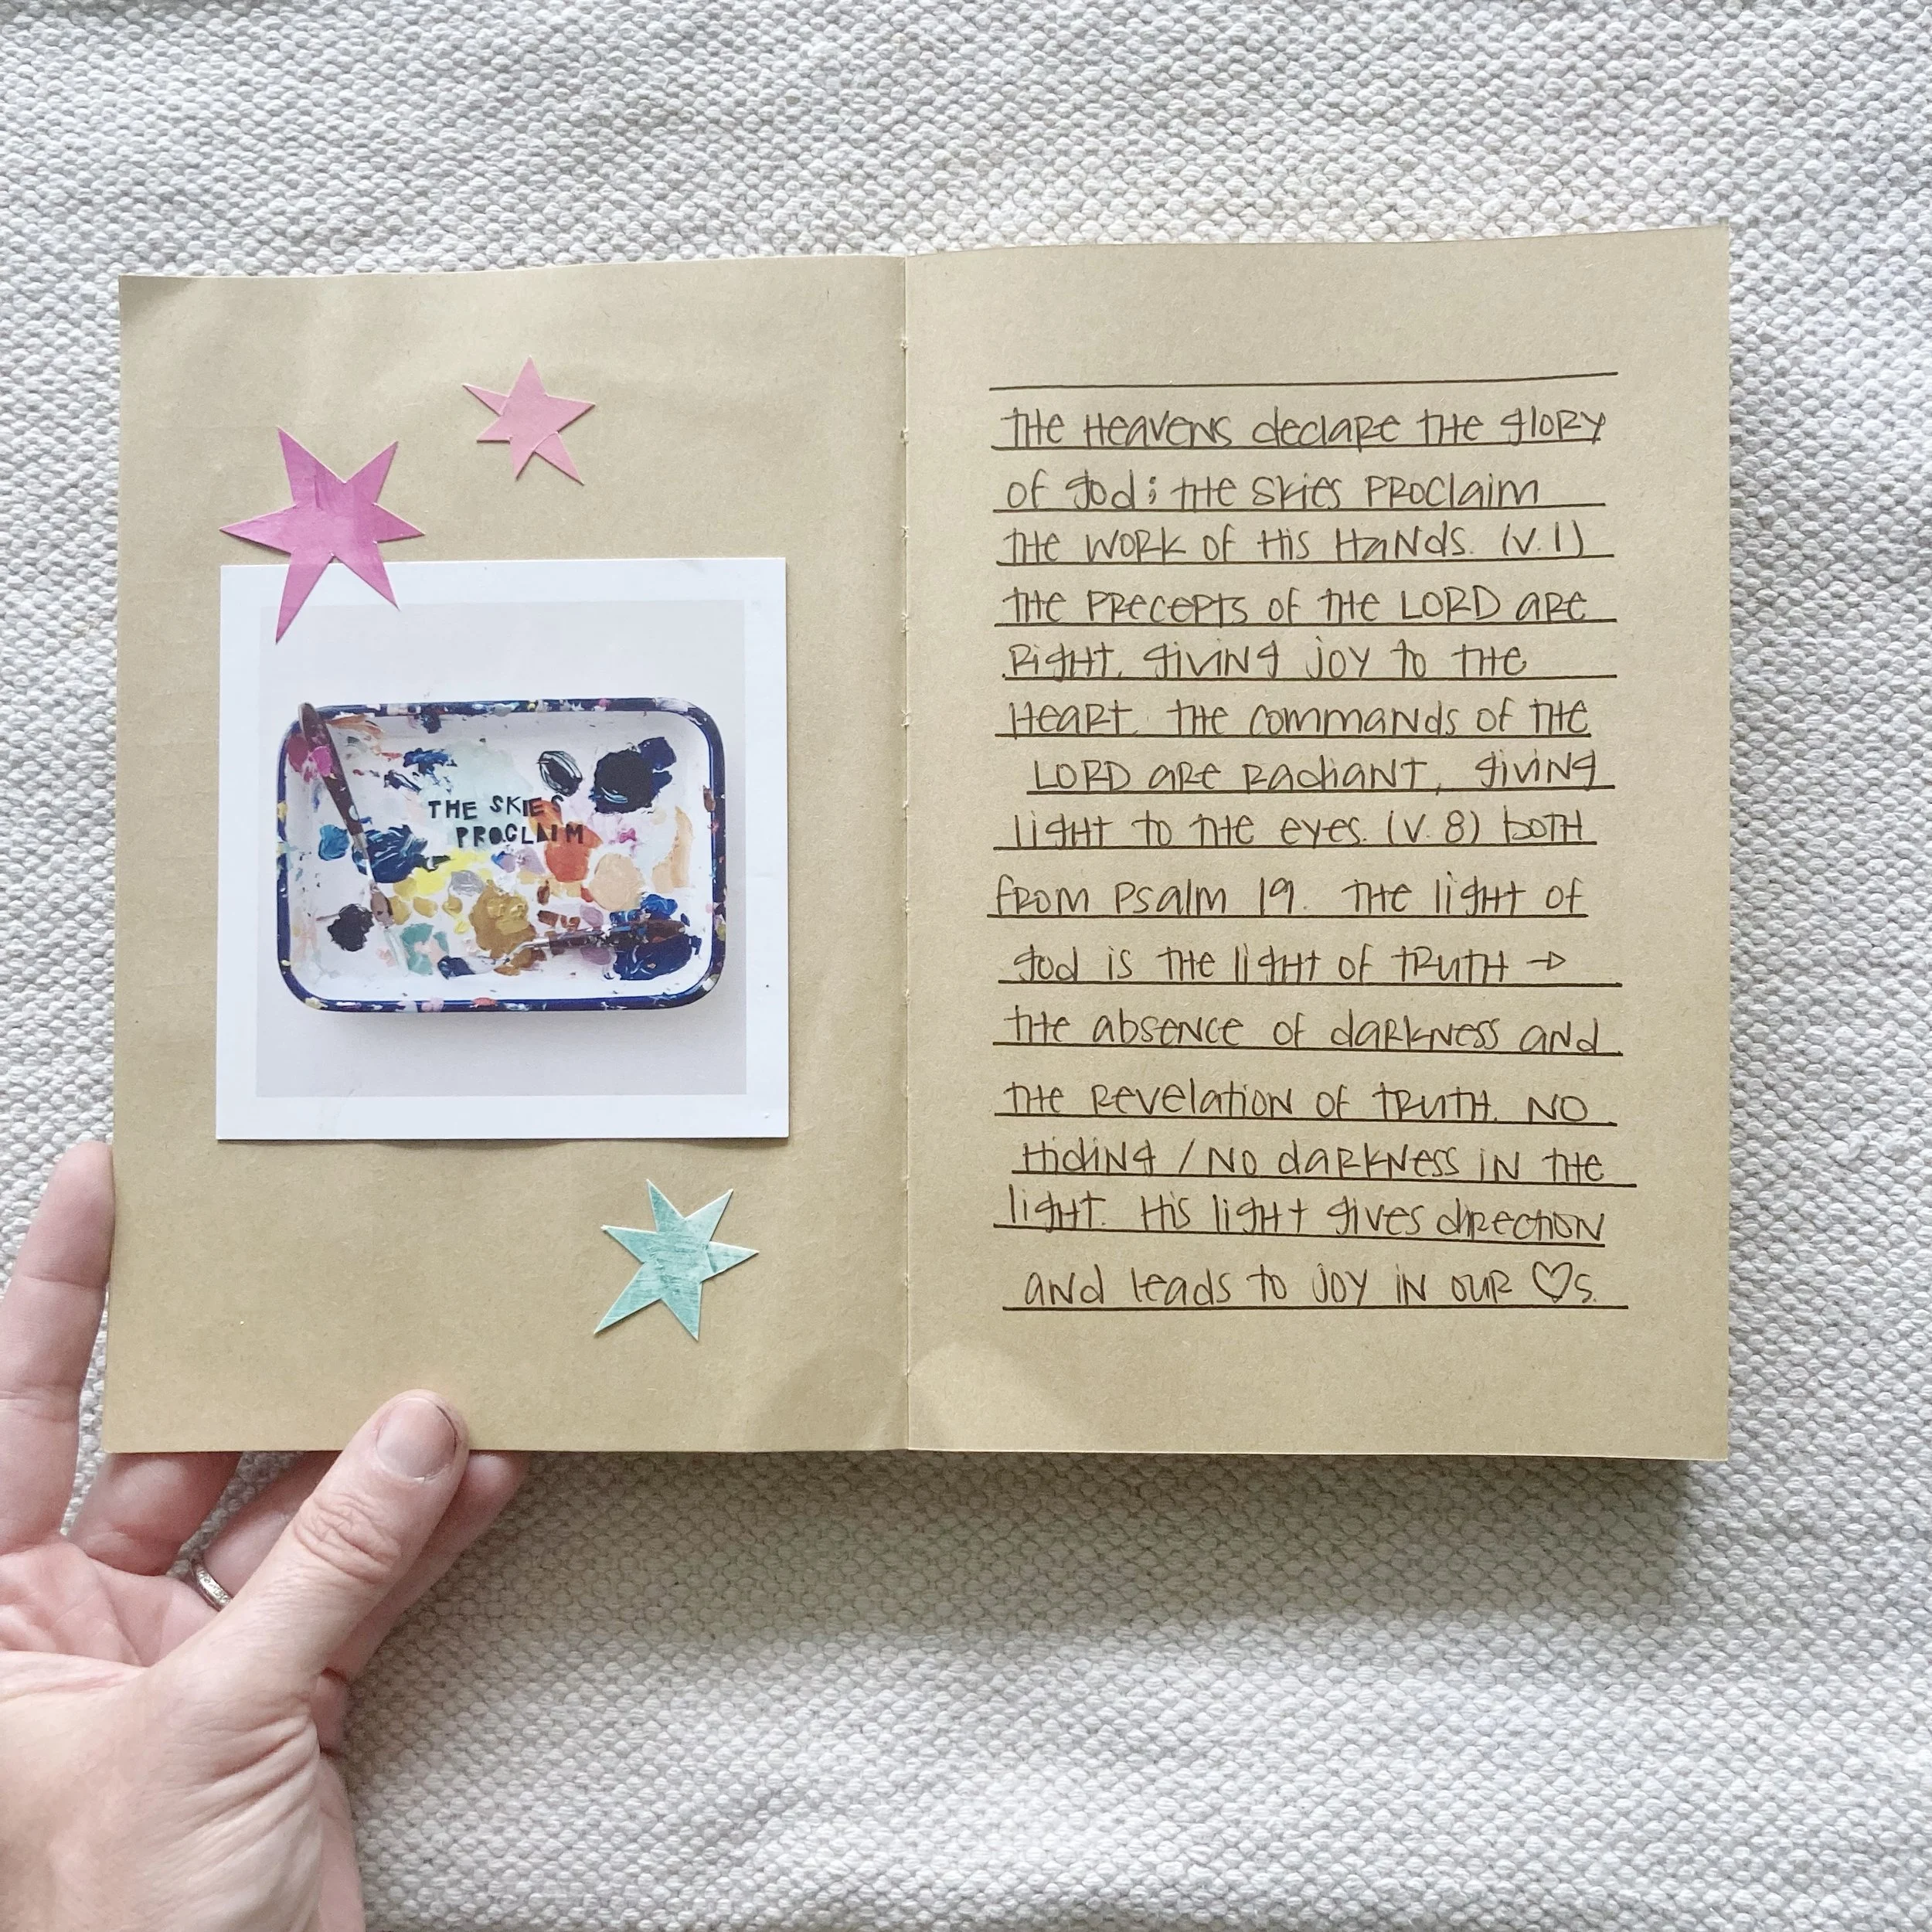 THE SKIES
PROCLAIM
THE HEAVENS declare THE glory
of god; THE SKIES PROCLAIM
THE WORK OF HIS HANDS. (V.1)
THE PRECEPTS OF THE LORD are
Right, giving joy to THE
Heart. THE commands of THE
LORD are Radiant, giving
light to THE eyes. (V. 8) both
from Psalm 19. THE light of
god is THE light of TRUTH →
THE absence of darkness and
THE Revelation of TRUTH. NO
Hiding / NO darkness in THE
light. His light gives direction
and leads to joy in our ♡s.